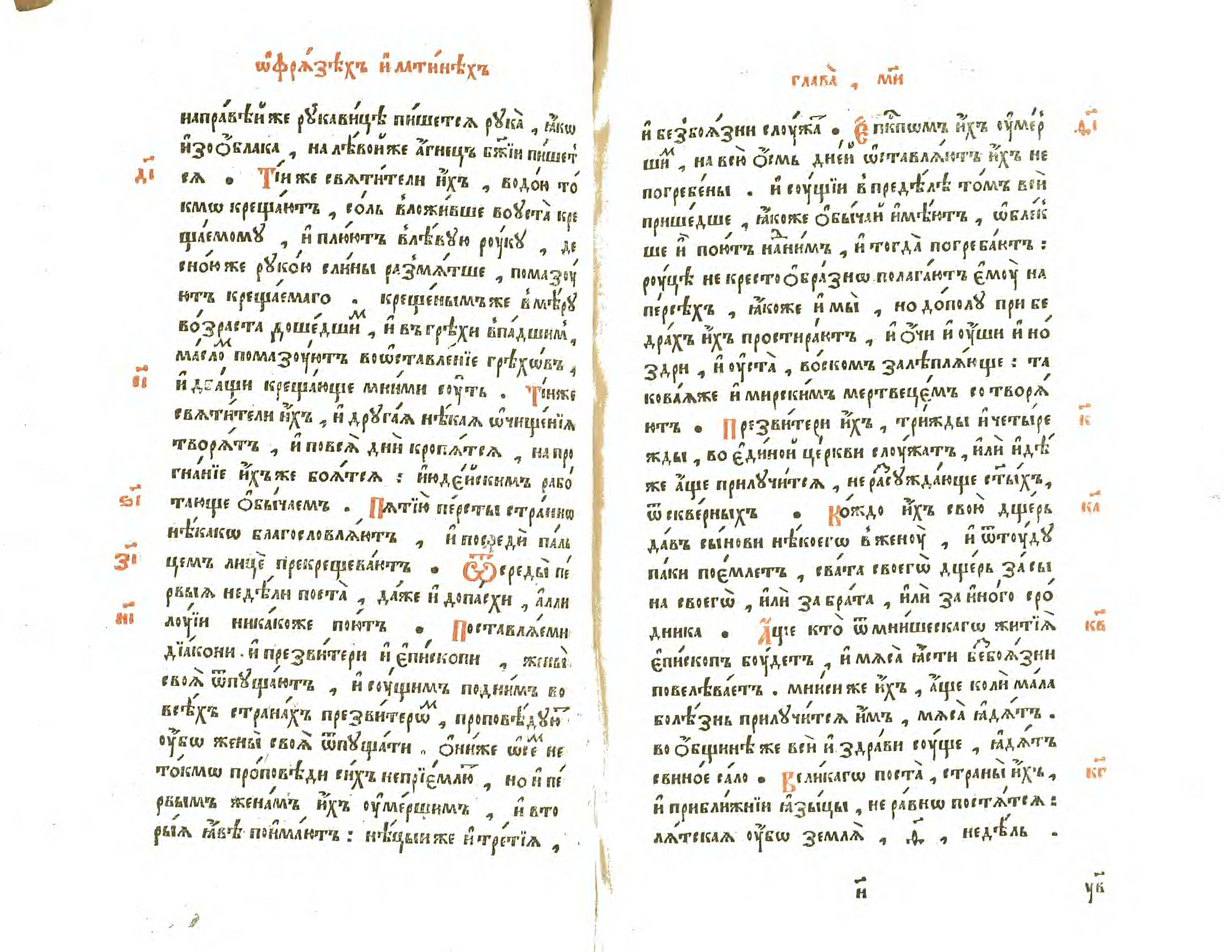 ѡ҆фрѧ́зѣхъ и҆лати́нѣхъ
напра́вѣйже рꙋкави́цѣ пи́шетсѧ рꙋка̀ , ꙗ҆́кѡ
и҆зѻ҆́блака , налѣ́войже а҆́гнецъ бж҃їи пи́шет
д҃і
сѧ . Ті́иже свѧти́тели и҆́хъ , водо́ю то́
кмѡ креща́ютъ , со́ль вложи́вше воꙋста̀ кре
ща́емомꙋ , и҆плю́ютъ влѣ́вꙋю роу́кꙋ , де
сно́юже рꙋко́ю сли́ны размѧ́тше , помазоу́
ютъ креща́емаго . креще́нымъже вмѣ́рꙋ
во́зраста доше́дшимъ , и҆въгрѣхѝ впа́дшимъ ,
ма́сломъ помазоу́ютъ воѡ҆ставле́нїе грѣхѡ́въ ,
є҃і
и҆два́щи креща́юще мни́ми соу́ть . Ті́иже
свѧти́тели и҆́хъ , и҆дрꙋга́ѧ нѣ́каѧ ѡ҆чище́нїѧ
творѧ́тъ , и҆повсѧ̀ дни̑ кропѧ́тсѧ , напро
гна́нїе и҆́хъже боѧ́тсѧ : и҆юде́йскимъ рабо́
ѕ҃і
тающе ѻ҆бы́чаемъ . Пѧтїю̀ пе́рсты стра́ннѡ
нѣ́какѡ благословлѧ́ютъ , и҆посредѝ па́ль
з҃і
цемъ лицѐ прекрещева́ютъ . Ѿсреды̀ пе́
рвыѧ недѣ́ли поста̀ , да́же и҆допа́схи , а҆лли
и҃і
лоу́їи ника́коже пою́тъ . Поставлѧ́еми
дїа́кони . и҆презви́тери и҆є҆пи́скопи , жены̀
своѧ̀ ѿпꙋща́ютъ , и҆соу́щимъ подни́мъ во
всѣ́хъ страна́хъ презви́терѡмъ , проповѣ́дꙋютъ
оу҆́бѡ жены̀ своѧ̀ ѿпꙋща́ти . Ѻ҆ни́же ѡ҆се́мъ не
то́кмѡ про́повѣди си́хъ непрїе́млютъ , но и҆пе́
рвымъ жена́мъ и҆́хъ оу҆ме́ршимъ , и҆вто
ры́ѧ ꙗ҆́вѣ пои́маютъ : нѣ́цыиже и҆тре́тїѧ ,
глава̀ , м҃и
и҆безбоѧ́зни слоу́жатъ . Є҆пⷭ҇кпѡмъ и҆́хъ оу҆ме́р
ѳ҃і
шимъ , навсю̀ ѻ҆́смь дне́й ѡ҆ставлѧ́ютъ и҆́хъ не
погребе́ны . и҆соу́щїи впредѣ́лѣ то́мъ всѝ
прише́дше , ꙗ҆́коже ѻ҆бы́чай и҆мѣ́ютъ , ѡ҆бле́к
ше и҆̀ пою́тъ нани́мъ , и҆тогда̀ погреба́ютъ :
роу́цѣ не крестоѻбра́знѡ полага́ютъ є҆моу̀ на
пе́рсѣхъ , ꙗ҆́коже и҆мы̀ , но до́полꙋ при бе
дра́хъ и҆́хъ простира́ютъ , и҆ѻ҆́чи и҆оу҆́ши и҆но́
здри , и҆оу҆ста̀ , во́скомъ залѣплѧ́юще : та
кова́ѧже и҆мирски́мъ мертвеце́мъ сотворѧ́
к҃
ютъ . Презви́тери и҆́хъ , три́жды и҆четы́ре
жды , во є҆ди́ной це́ркви слоу́жатъ , и҆лѝ и҆дѣ́
же а҆́ще прилꙋчи́тсѧ , неразсꙋжда́юще ст҃ы́хъ ,
к҃а
ѿскве́рныхъ . Ко́ждо и҆́хъ свою̀ дще́рь
да́въ сы́нови нѣ́коегѡ вженоу̀ , и҆ѿтоу́дꙋ
па́ки пое́млетъ , сва́та своегѡ̀ дще́рь засы́
на своегѡ̀ , и҆лѝ забра́та , и҆лѝ заи҆́ного сро́
к҃в
дника . А҆́ще кто̀ ѿмни́шескагѡ житїѧ̀
є҆пи́скопъ боу́детъ , и҆мѧса̀ ꙗ҆́сти безбоѧ́зни
повелѣва́етъ . мни́сиже и҆́хъ , а҆́ще колѝ ма́ла
болѣ́знь прилꙋчи́тсѧ и҆́мъ , мѧса̀ ꙗ҆дѧ́тъ .
во ѻ҆́бщинѣже всѝ и҆здра́ви соу́ще , ꙗ҆дѧ́тъ
к҃г
свино́е са́ло . Вели́кагѡ поста̀ , страны̀ и҆́хъ ,
и҆прибли́жнїи ꙗ҆зы́цы , не ра́внѡ постѧ́тсѧ :
лѧ́тскаѧ оу҆́бѡ землѧ̀ , ѳ҃ , недѣ́ль .
н҃
ув